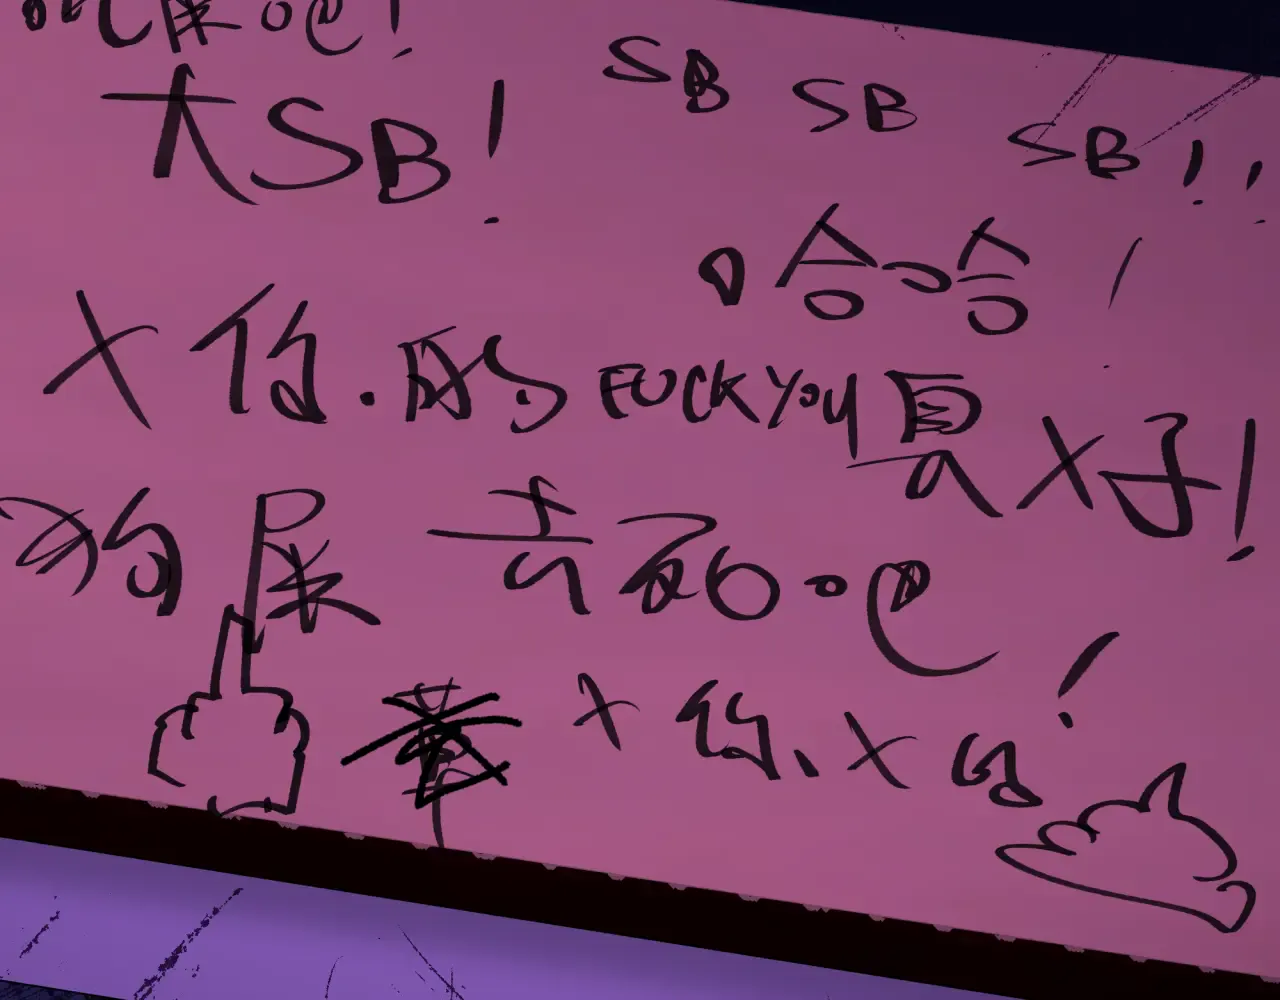 吃屎吧!
大SB!
SB SB SB!!
哈哈!
X你.的 FUCK YOU 臭X子!
狗屎 去死吧!
X你、X的